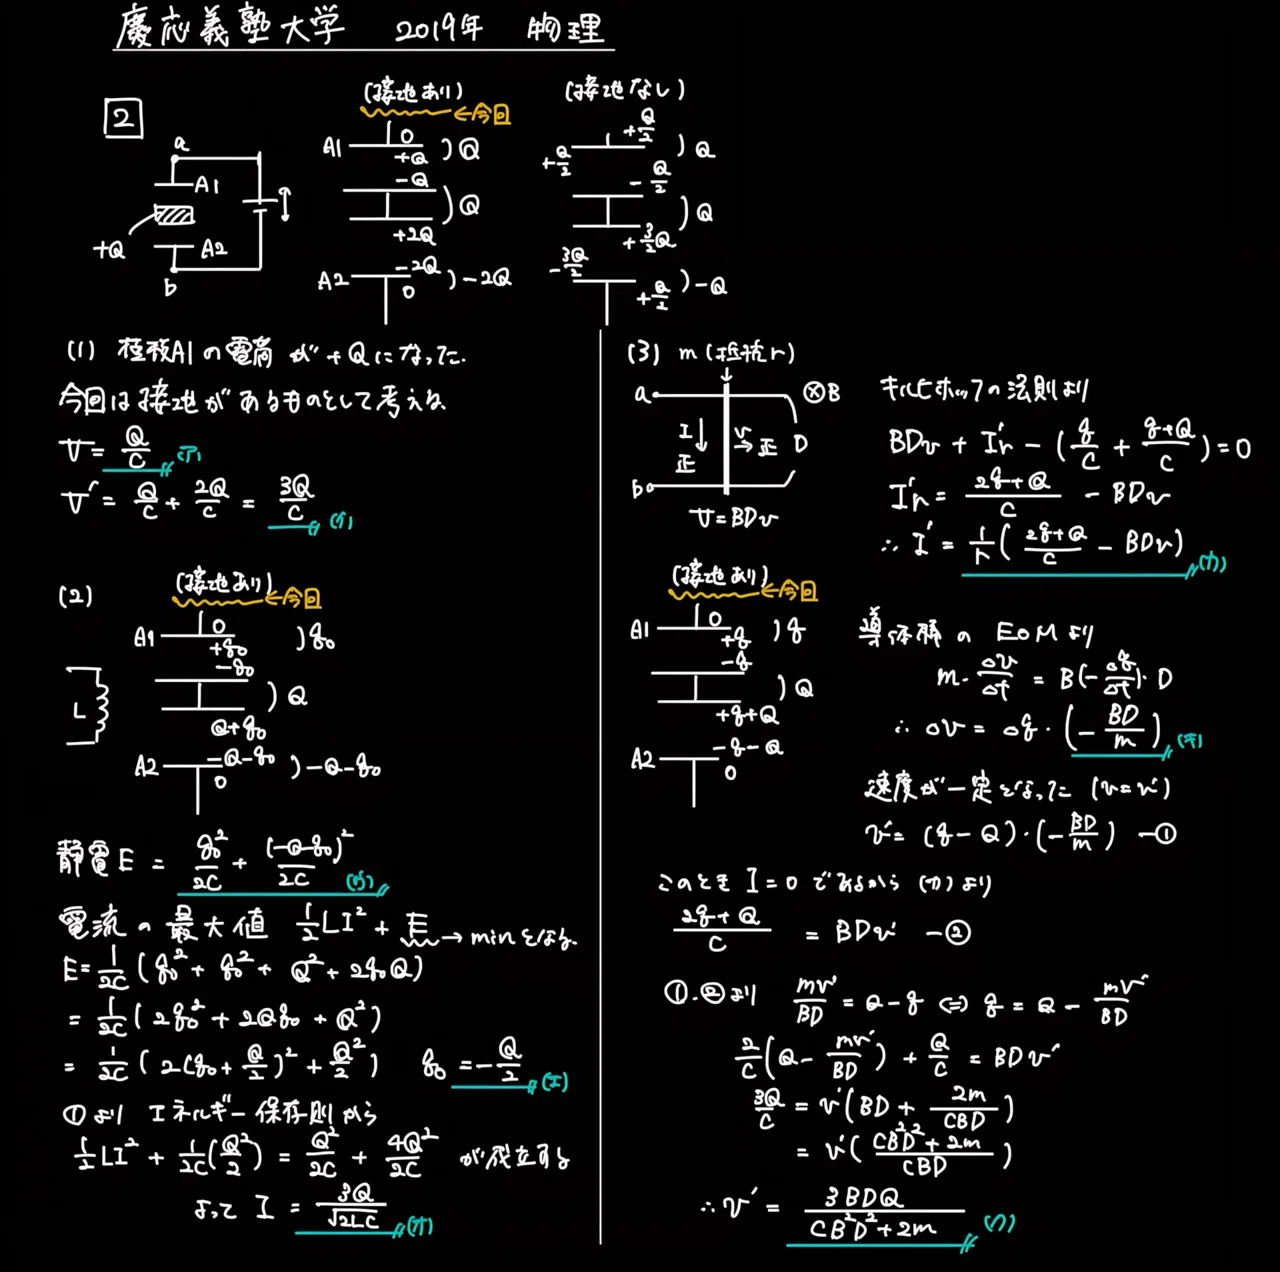 慶応義塾大学 2019年 物理
2
a
A1
+Q
A2
b
(接地あり)
←今回
A1 0 +Q )Q
-Q
)Q
+2Q
A2 -2Q 0 )-2Q
(接地なし)
+Q/2 +Q/2 )Q
-Q/2
)Q
+3/2Q
-3Q/2 +Q/2 )-Q
(1) 極板A1の電荷が+Qになった.
今回は接地があるものとして考える
V = Q/C (ア)
V' = Q/C + 2Q/C = 3Q/C (イ)
(2)
L
(接地あり)
←今回
A1 0 +q₀ )q₀
-q₀
)Q
Q+q₀
A2 -Q-q₀ 0 )-Q-q₀
静電E = q₀²/2C + (-Q-q₀)²/2C (ウ)
電流の最大値 1/2 LI² + E → minとなる.
E = 1/2C (q₀² + q₀² + Q² + 2q₀Q)
= 1/2C (2q₀² + 2Qq₀ + Q²)
= 1/2C (2(q₀ + Q/2)² + Q²/2) q₀ = -Q/2 (エ)
①より エネルギー保存則から
1/2 LI² + 1/2C (Q²/2) = Q²/2C + 4Q²/2C が成立する
よって I = 3Q/√2LC (オ)
(3) m(抵抗r)
a
⊗B
I↓正
v→正
D
b
V = BDv
(接地あり)
←今回
A1 0 +q )q
-q
)Q
+q+Q
A2 -q-Q 0
キルヒホッフの法則より
BDv + I'r - (q/C + (q+Q)/C) = 0
I'r = (2q+Q)/C - BDv
∴ I' = 1/r ((2q+Q)/C - BDv) (カ)
導体棒のEoMより
m・Δv/Δt = B(-Δq/Δt)・D
∴ Δv = Δq・(-BD/m) (キ)
速度が一定となった (v=v')
v' = (q-Q)・(-BD/m) -①
このとき I=0 であるから (カ)より
(2q+Q)/C = BDv' -②
①.②より mv'/BD = Q-q ⇔ q = Q - mv'/BD
2/C (Q - mv'/BD) + Q/C = BDv'
3Q/C = v'(BD + 2m/CBD)
= v'((CB²D²+2m)/CBD)
∴ v' = 3BDQ/(CB²D²+2m) (ク)